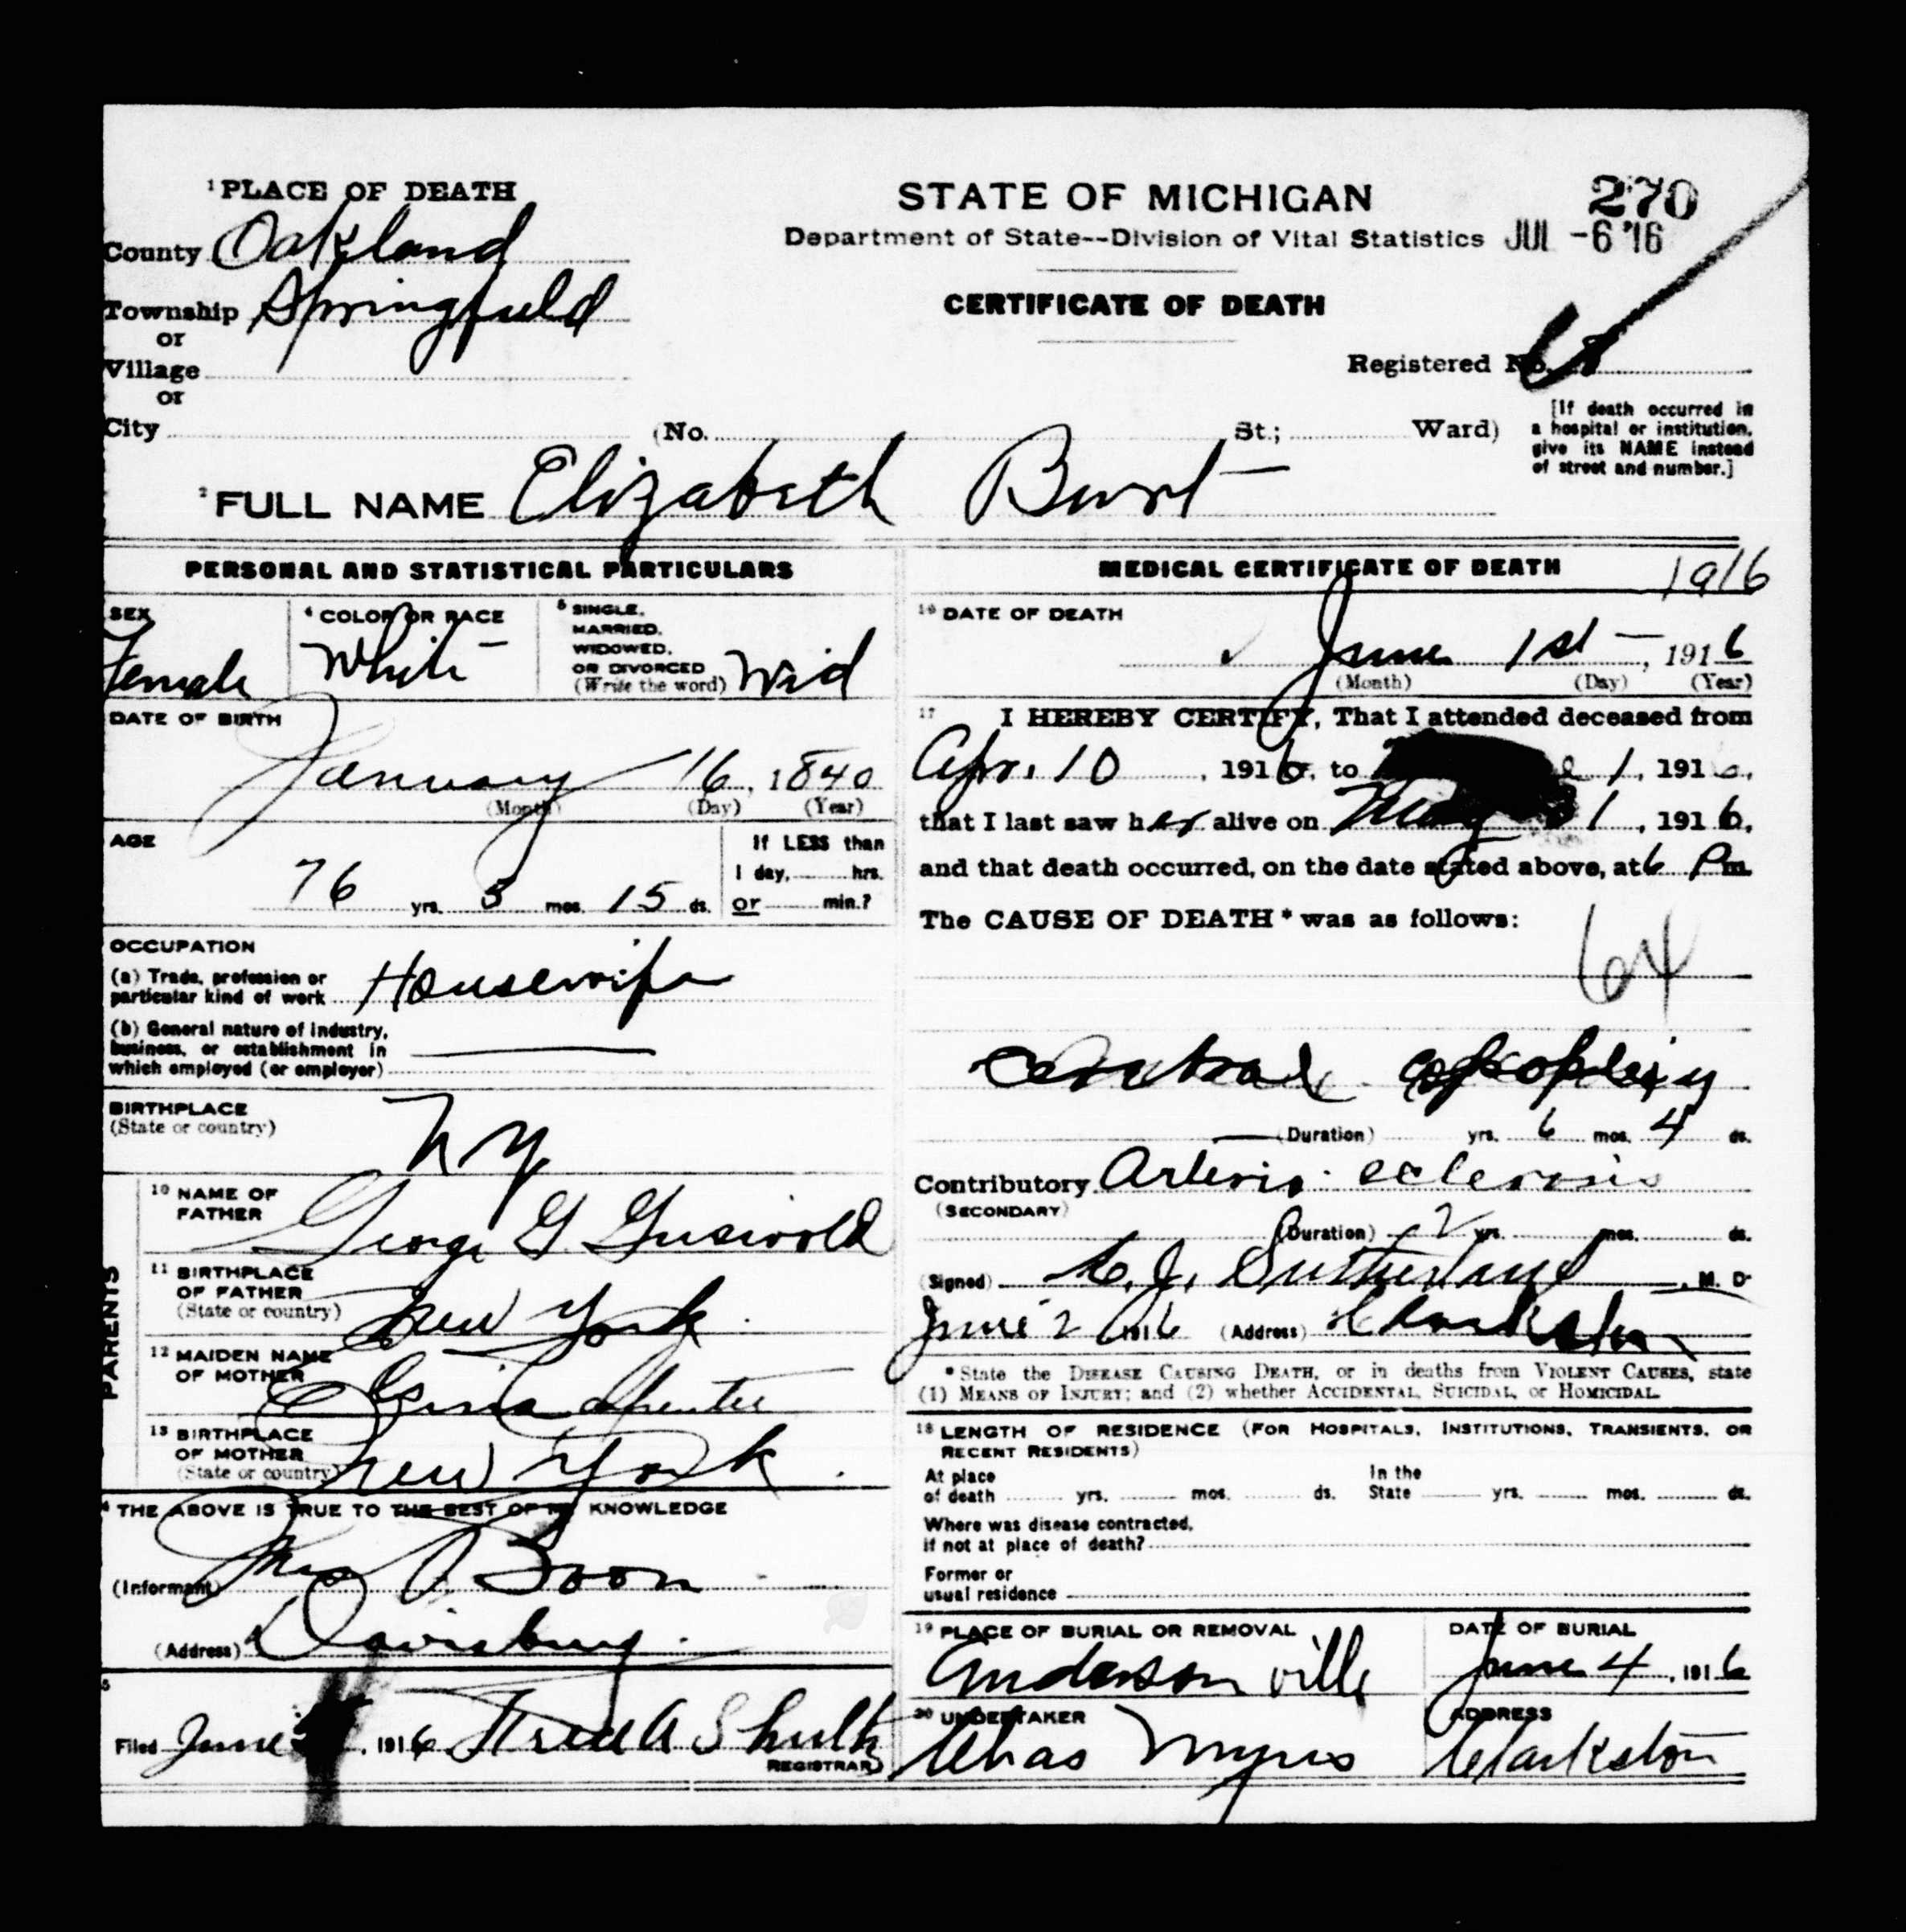 1 PLACE OF DEATH
County Oakland
Township Springfield
or
Village
or
City (No. St.; Ward)
STATE OF MICHIGAN
Department of State--Division of Vital Statistics
270
JUL -6 '16
CERTIFICATE OF DEATH
Registered No.
[If death occurred in
a hospital or institution,
give its NAME instead
of street and number.]
2 FULL NAME Elizabeth Burt
PERSONAL AND STATISTICAL PARTICULARS
SEX
Female
4 COLOR OR RACE
White
5 SINGLE,
MARRIED,
WIDOWED,
OR DIVORCED
(Write the word) Wid
DATE OF BIRTH
January 16, 1840
(Month) (Day) (Year)
AGE
76 yrs. 5 mos. 15 ds.
If LESS than
1 day, hrs.
or min.?
OCCUPATION
(a) Trade, profession or
particular kind of work Housewife
(b) General nature of industry,
business, or establishment in
which employed (or employer)
BIRTHPLACE
(State or country)
N Y
PARENTS
10 NAME OF
FATHER
George G Griswold
11 BIRTHPLACE
OF FATHER
(State or country)
New York
12 MAIDEN NAME
OF MOTHER
13 BIRTHPLACE
OF MOTHER
(State or country)
New York
THE ABOVE IS TRUE TO THE BEST OF MY KNOWLEDGE
(Informant) Mrs Boon
(Address) Davisburg
Filed June , 1916 Fred A Shultz
REGISTRAR
MEDICAL CERTIFICATE OF DEATH
1916
16 DATE OF DEATH
June 1st, 1916
(Month) (Day) (Year)
17 I HEREBY CERTIFY, That I attended deceased from
Apr. 10, 1916, to 1, 191
that I last saw her alive on May 1, 1916,
and that death occurred, on the date stated above, at 6 P m.
The CAUSE OF DEATH* was as follows:
64
Cerebral apoplexy
(Duration) yrs. 6 mos. 4 ds.
Contributory Arterio sclerosis
(SECONDARY)
(Duration) 2 yrs. mos. ds.
(Signed) C. J. Sutherland, M. D.
June 2 1916 (Address) Clarkston
*State the DISEASE CAUSING DEATH, or in deaths from VIOLENT CAUSES, state
(1) MEANS OF INJURY; and (2) whether ACCIDENTAL, SUICIDAL, or HOMICIDAL.
18 LENGTH OF RESIDENCE (FOR HOSPITALS, INSTITUTIONS, TRANSIENTS, OR
RECENT RESIDENTS)
At place
of death yrs. mos. ds.
In the
State yrs. mos. ds.
Where was disease contracted,
if not at place of death?
Former or
usual residence
19 PLACE OF BURIAL OR REMOVAL
Andersonville
DATE OF BURIAL
June 4, 1916
20 UNDERTAKER
Chas Myers
ADDRESS
Clarkston